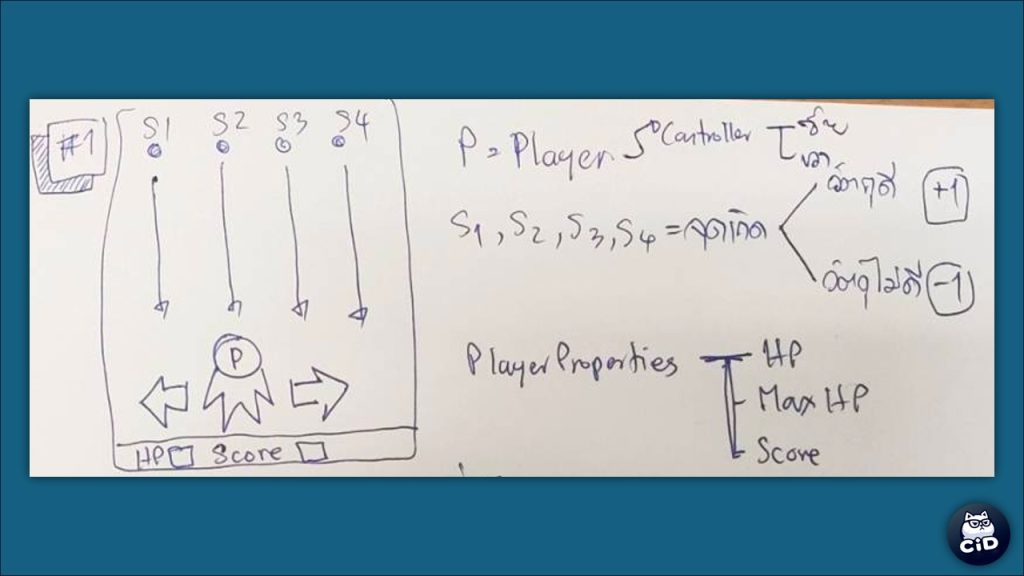 #1
S1 S2 S3 S4
P
HP Score
P = Player Controller ซ้าย
ขวา
S1, S2, S3, S4 = จุดเกิด
วัตถุดี +1
วัตถุไม่ดี -1
Player Properties HP
Max HP
Score
CiD